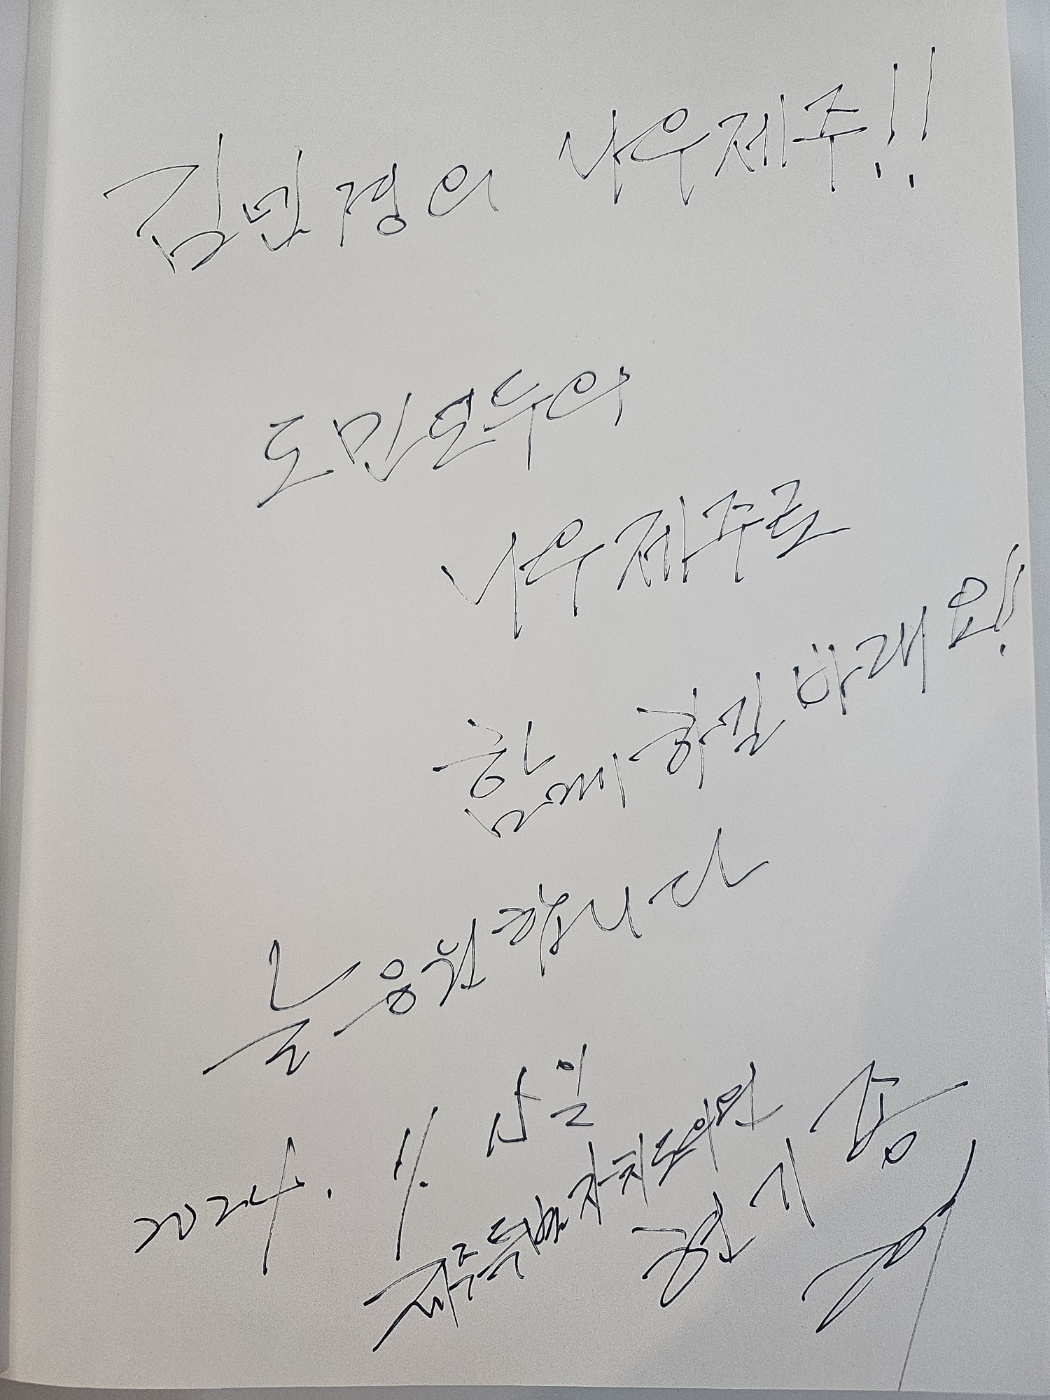 김민경의 나우제주!!
도민모두의
나우제주로
함께하길 바래요!
늘 응원합니다
2024. 1. 15일
제주특별자치도의원
현기종